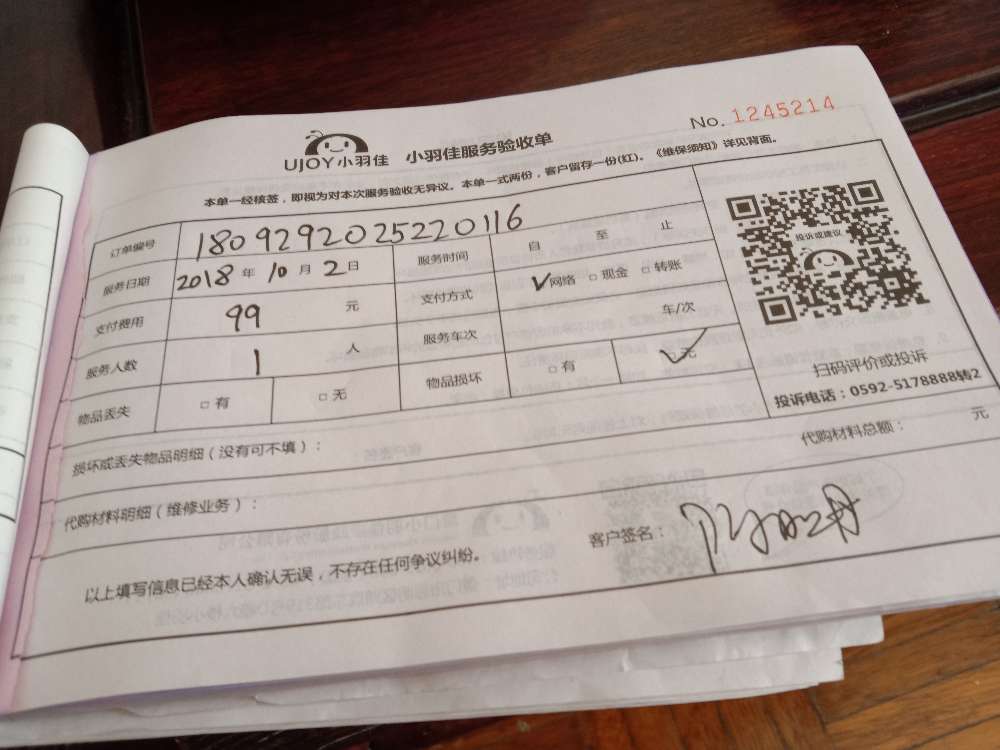 No. 1245214
UJOY小羽佳 小羽佳服务验收单
本单一经核签，即视为对本次服务验收无异议。本单一式两份，客户留存一份(红)。《维保须知》详见背面。
订单编号 1809292025220116
服务日期 2018 年 10 月 2 日 服务时间 自 至 止
支付费用 99 元 支付方式 √网络 □ 现金 □ 转账
服务人数 1 人 服务车次 车/次
物品丢失 □ 有 □ 无 物品损坏 □ 有 √无
投诉或建议
扫码评价或投诉
投诉电话：0592-5178888转2
损坏或丢失物品明细（没有可不填）：
代购材料明细（维修业务）： 代购材料总额： 元
以上填写信息已经本人确认无误，不存在任何争议纠纷。 客户签名：